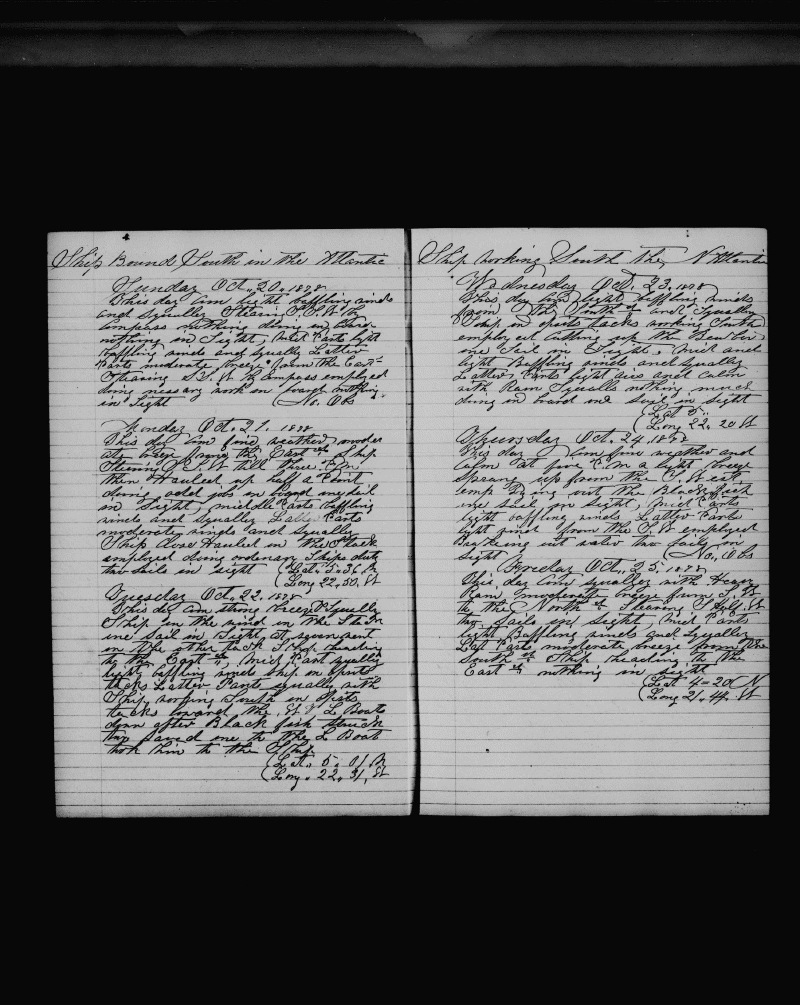 Ship Bound South in the Atlantic
Sunday Oct. 20. 1878
This day Com light baffling winds
and Squally Stearing S.S.W by
Compass nothing doing in board
nothing in Sight, Mid Parts light
baffling winds and Squally Latter
Parts moderate breez from the East
Stearing by Compass employed
doing work on board nothing
in Sight (No. Obs
Monday Oct. 21. 1878
This day Com fine weather moder
ate breez from the East Ship
Stearing S.S.W till three P.M
then Hauled up half a Point
doing odd jobs in board no sail
in Sight, middle Parts baffling
winds and Squally Latter Parts
moderate winds and Squally
Ship Close Hauled in the
employed doing ordenary Ships duty
two Sails in sight (Lat. 5. 36 N
(Long 22. 50. W
Tuesday Oct. 22. 1878
This day Com strong breez & Squally
Ship in the wind in the
one Sail in Sight, at seven went
on the other tack Ship heading
to the East, Mid Part squally
light baffling winds Ship in
tacks Latter Parts squally with
Ship working South on
tacks the L Boats
down after Black fish struck
two saved one to the L Boat
took him to the Ship
(Lat. 5. 01 N
(Long. 22. 31, W
Ship working South the N Atlantic
Wednesday Oct. 23. 1878
This day Com light baffling winds
from the South and Squally
Ship in tacks working South
employed Cutting up the
one Sail in Sight, Mid and
light Baffling winds and Squally
Latter Parts light airs and Calm
with Rain Squalls nothing much
doing in board one sail in sight
(Lat 5.
(Long 22. 20 W
Thursday Oct. 24. 1878
This day Com fine weather and
Calm at five P.M a light breeze
sprang up from the
emp out the Black fish
one sail in sight, Mid Parts
light baffling winds Latter Parts
light wind from the employed
Breaking out water two sails in
sight (No. Obs
Friday Oct. 25. 1878
This day Com squally with Heavy
Rain moderate breeze from
to the North Stearing
two sails in sight, Mid Parts
light Baffling winds and Squally
Last Parts moderate breeze from the
South Ship heading to the
East nothing in sight
(Lat 4=20 N
(Long 21. 44. W